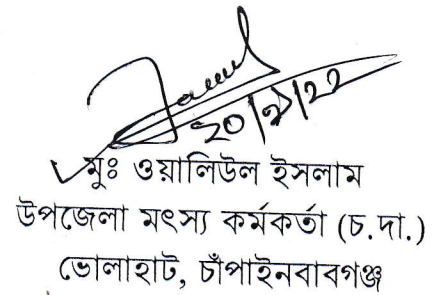 ২০/৯/২২
মুঃ ওয়ালিউল ইসলাম
উপজেলা মৎস্য কর্মকর্তা (চ.দা.)
ভোলাহাট, চাঁপাইনবাবগঞ্জ